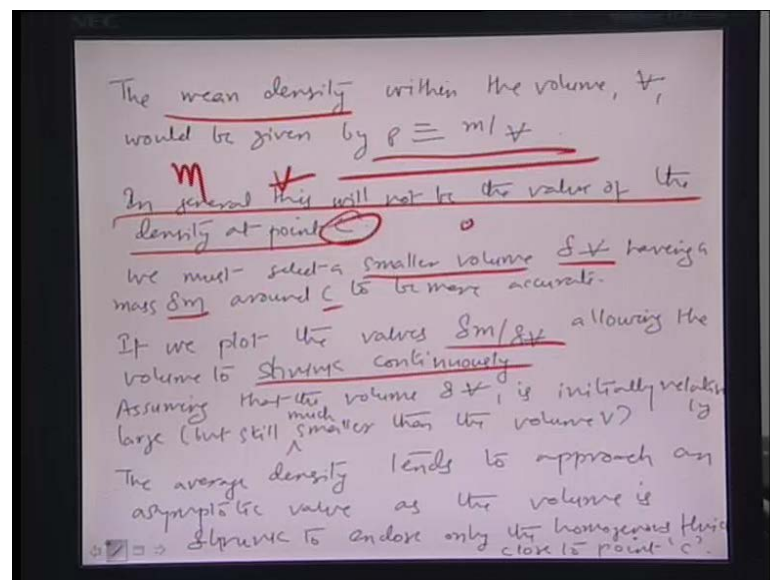 NEC
The mean density within the volume, V,
would be given by ρ ≡ m/V.
m V
In general this will not be the value of the
density at point C.
We must select a smaller volume δV having a
mass δm around C to be more accurate.
If we plot the values δm/δV allowing the
volume to shrink continuously
Assuming that the volume δV, is initially relatively
large (but still much smaller than the volume V)
The average density tends to approach an
asymptotic value as the volume is
shrunk to enclose only the homogenous fluid
close to point 'C'.